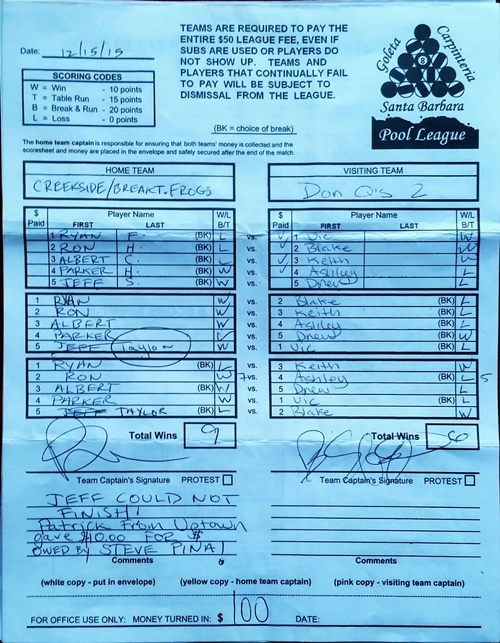 Date: 12/15/15
TEAMS ARE REQUIRED TO PAY THE
ENTIRE $50 LEAGUE FEE, EVEN IF
SUBS ARE USED OR PLAYERS DO
NOT SHOW UP. TEAMS AND
PLAYERS THAT CONTINUALLY FAIL
TO PAY WILL BE SUBJECT TO
DISMISSAL FROM THE LEAGUE.
Goleta Carpinteria
8
Santa Barbara
Pool League
SCORING CODES
W = Win - 10 points
T = Table Run - 15 points
B = Break & Run - 20 points
L = Loss - 0 points
(BK = choice of break)
The home team captain is responsible for ensuring that both teams' money is collected and the
scoresheet and money are placed in the envelope and safely secured after the end of the match.
HOME TEAM VISITING TEAM
CREEKSIDE/BREAKT.FROGS Don Q's 2
$ Paid Player Name FIRST LAST W/L B/T $ Paid Player Name FIRST LAST W/L B/T
1 RYAN F. (BK) L vs. 1 Vic W
2 RON H. (BK) L vs. 2 Blake W
3 ALBERT C. (BK) L vs. 3 Keith W
4 PARKER H. (BK) W vs. 4 Ashley L
5 JEFF S. (BK) W vs. 5 Drew L
1 RYAN W vs. 2 Blake (BK) L
2 RON W vs. 3 Keith (BK) L
3 ALBERT W vs. 4 Ashley (BK) L
4 PARKER vs. 5 Drew (BK)
5 JEFF Taylor W vs. 1 Vic (BK) L
1 RYAN (BK) L vs. 3 Keith W
2 RON W vs. 4 Ashley (BK) L 5
3 ALBERT (BK) W vs. 5 Drew L
4 PARKER W vs. 1 Vic (BK) L
5 JEFF TAYLOR (BK) L vs. 2 Blake W
Total Wins 9 Total Wins
Team Captain's Signature PROTEST Team Captain's Signature PROTEST
JEFF COULD NOT
FINISH!
Patrick From Uptown
gave $10.00 FOR $
OWED BY STEVE PINA!
Comments Comments
(white copy - put in envelope) (yellow copy - home team captain) (pink copy - visiting team captain)
FOR OFFICE USE ONLY: MONEY TURNED IN: $ 100 DATE: